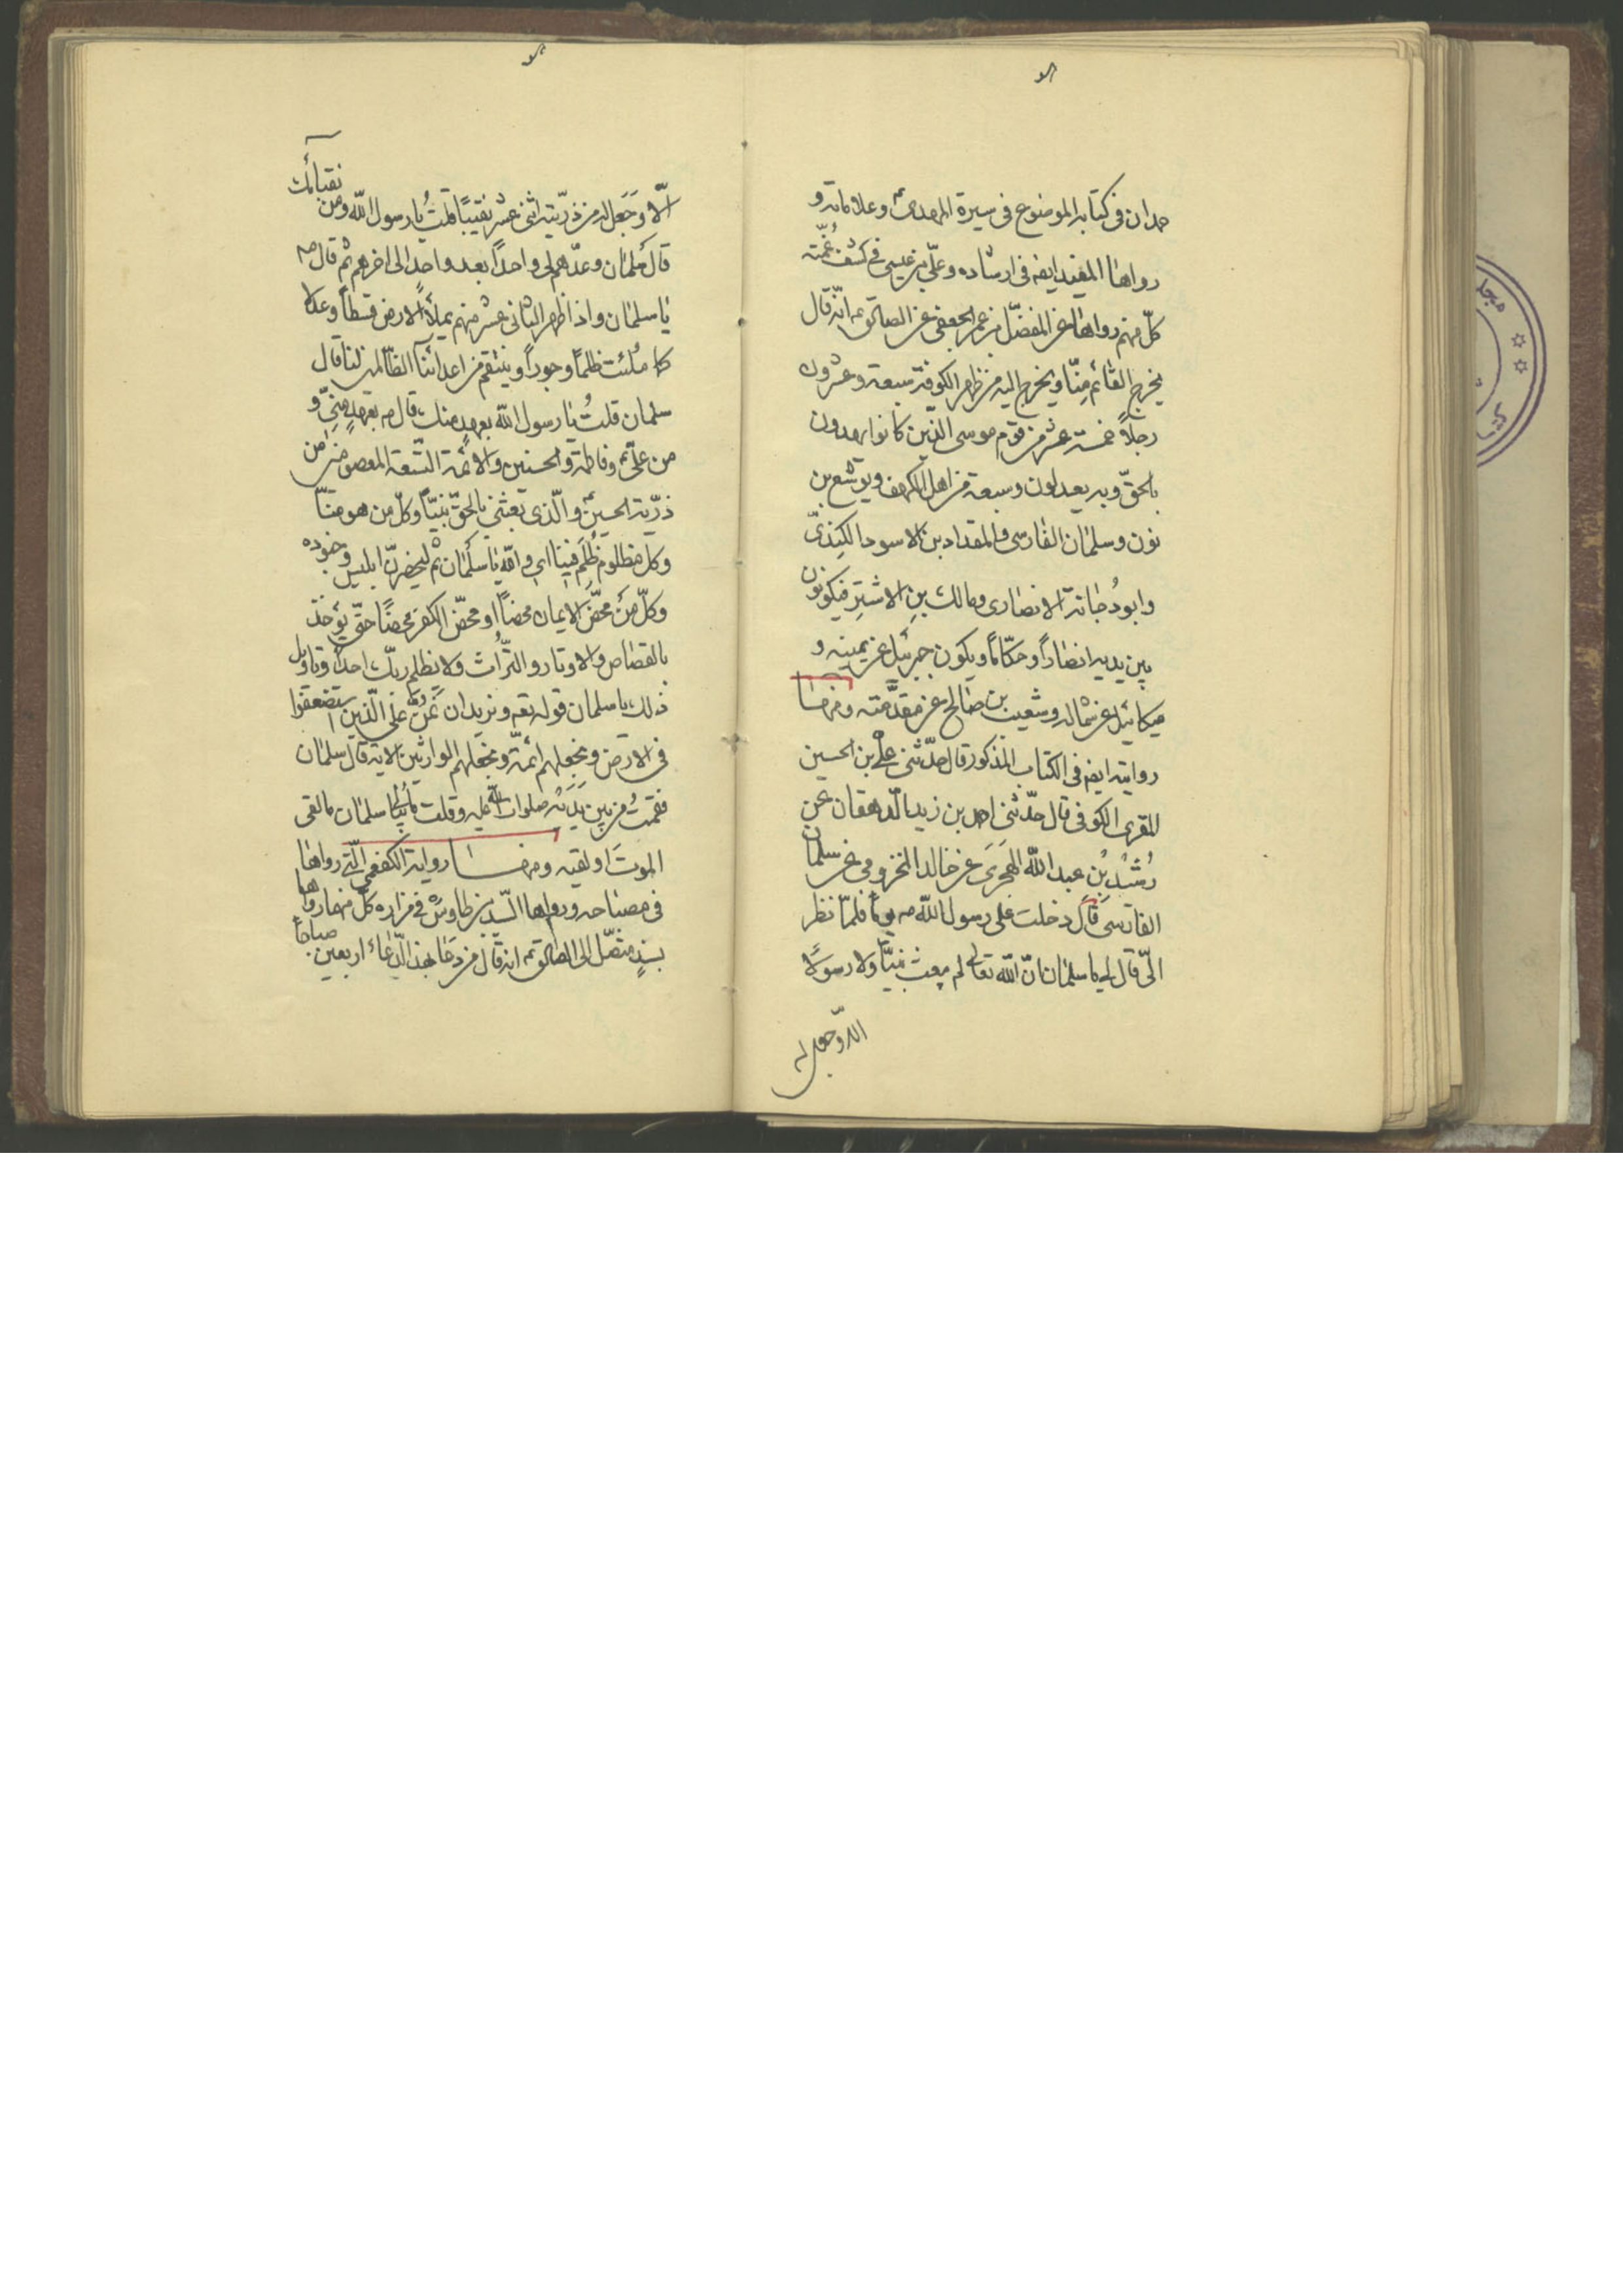 حمدان فی كتابه الموضوع فی سيرة المهدیّ وعلاماته و
رواها المفيد ايضه فی ارشاده وعلیّ بن عيسی فی كشف غمّته
كلّ منهم رواها عن المفضّل بن عمر الجعفی عن الصادق ع انّه قال
يخرج القائم منّا ويخرج اليه من ظهر الكوفة سبعة وعشرون
رجلاً خمسة عشر من قوم موسی الّذين كانوا يهدون
بالحقّ وبه يعدلون وسبعة من اهل الكهف ويوشع بن
نون وسلمان الفارسی والمقداد بن الاسود الكندیّ
وابو دُجانة الانصاری ومالك بن الاشتر فيكونون
بين يديه انصاراً وحكّاماً ويكون جبرئيل عن يمينه و
ميكائيل عن شماله وشعيب بن صالح عن مقدّمته ومنها
روايته ايضه فی الكتاب المذكور قال حدّثنی علی بن الحسين
المقری الكوفی قال حدّثنی احمد بن زيد الدّهقان عن
رُشْد بْن عبد اللّه الهَجَری عن خالد المخزومی عن سلمان
الفارسی قال دخلت علی رسول اللّه ص يوماً فلمّا نظر
الیّ قال لی يا سلمان انّ اللّه تعالی لم يبعث نبيّاً ولا رسولاً
الّا وجعل له
الّا وَجَعل له من ذرّيته اثنی عشر نقيباً قلتُ يا رسول اللّه ومن نقبائك
قال سلمان وعدّهم لی واحداً بعد واحدٍ الی اخرهم ثم قال ص
يا سلمان واذا ظهر الثانی عشر منهم يملأ الارض قسطاً وعدلا
كما مُلئت ظلماً وجوراً وينتقم من اعدائنا الظّالمين لنا قال
سلمان قلتُ يا رسول اللّه بعهدٍ منك قال ص بعهدٍ منّی و
من علیّ وفاطمة والحسنين والائمّة التّسعة المعصومين من
ذرّية الحسين والّذی بعثنی بالحقّ نبيّاً وكلّ من هو منّا
وكلّ مظلوم ظُلم فينا ای واللّه يا سلمان ثم ليحضرنّ ابليس وجنوده
وكلّ من محّض الايمان محضاً او محّض الكفر محضاً حتّی يؤخذ
بالقصاص والاوتار والتّراث ولا يظلم ربّك احداً وتاويل
ذلك يا سلمان قوله تعه ونريد ان نَمُنّ علی الّذين استضعفوا
فی الارض ونجعلهم ائمّة ونجعلهم الوارثين الاية قال سلمان
فقمتُ من بين يَدَيْه صلوات اللّه عليه وقلت ما يبالی سلمان ما لقی
الموتَ او لقيه ومنها رواية الكفعمی الّتی رواها
فی مصباحه ورواها السّيد بن طاوس فی مزاره كلّ منهما رواها
بسندٍ متّصل الی الصادق ع انه قال من دعا بهذا الدّعاء اربعين صباحاً